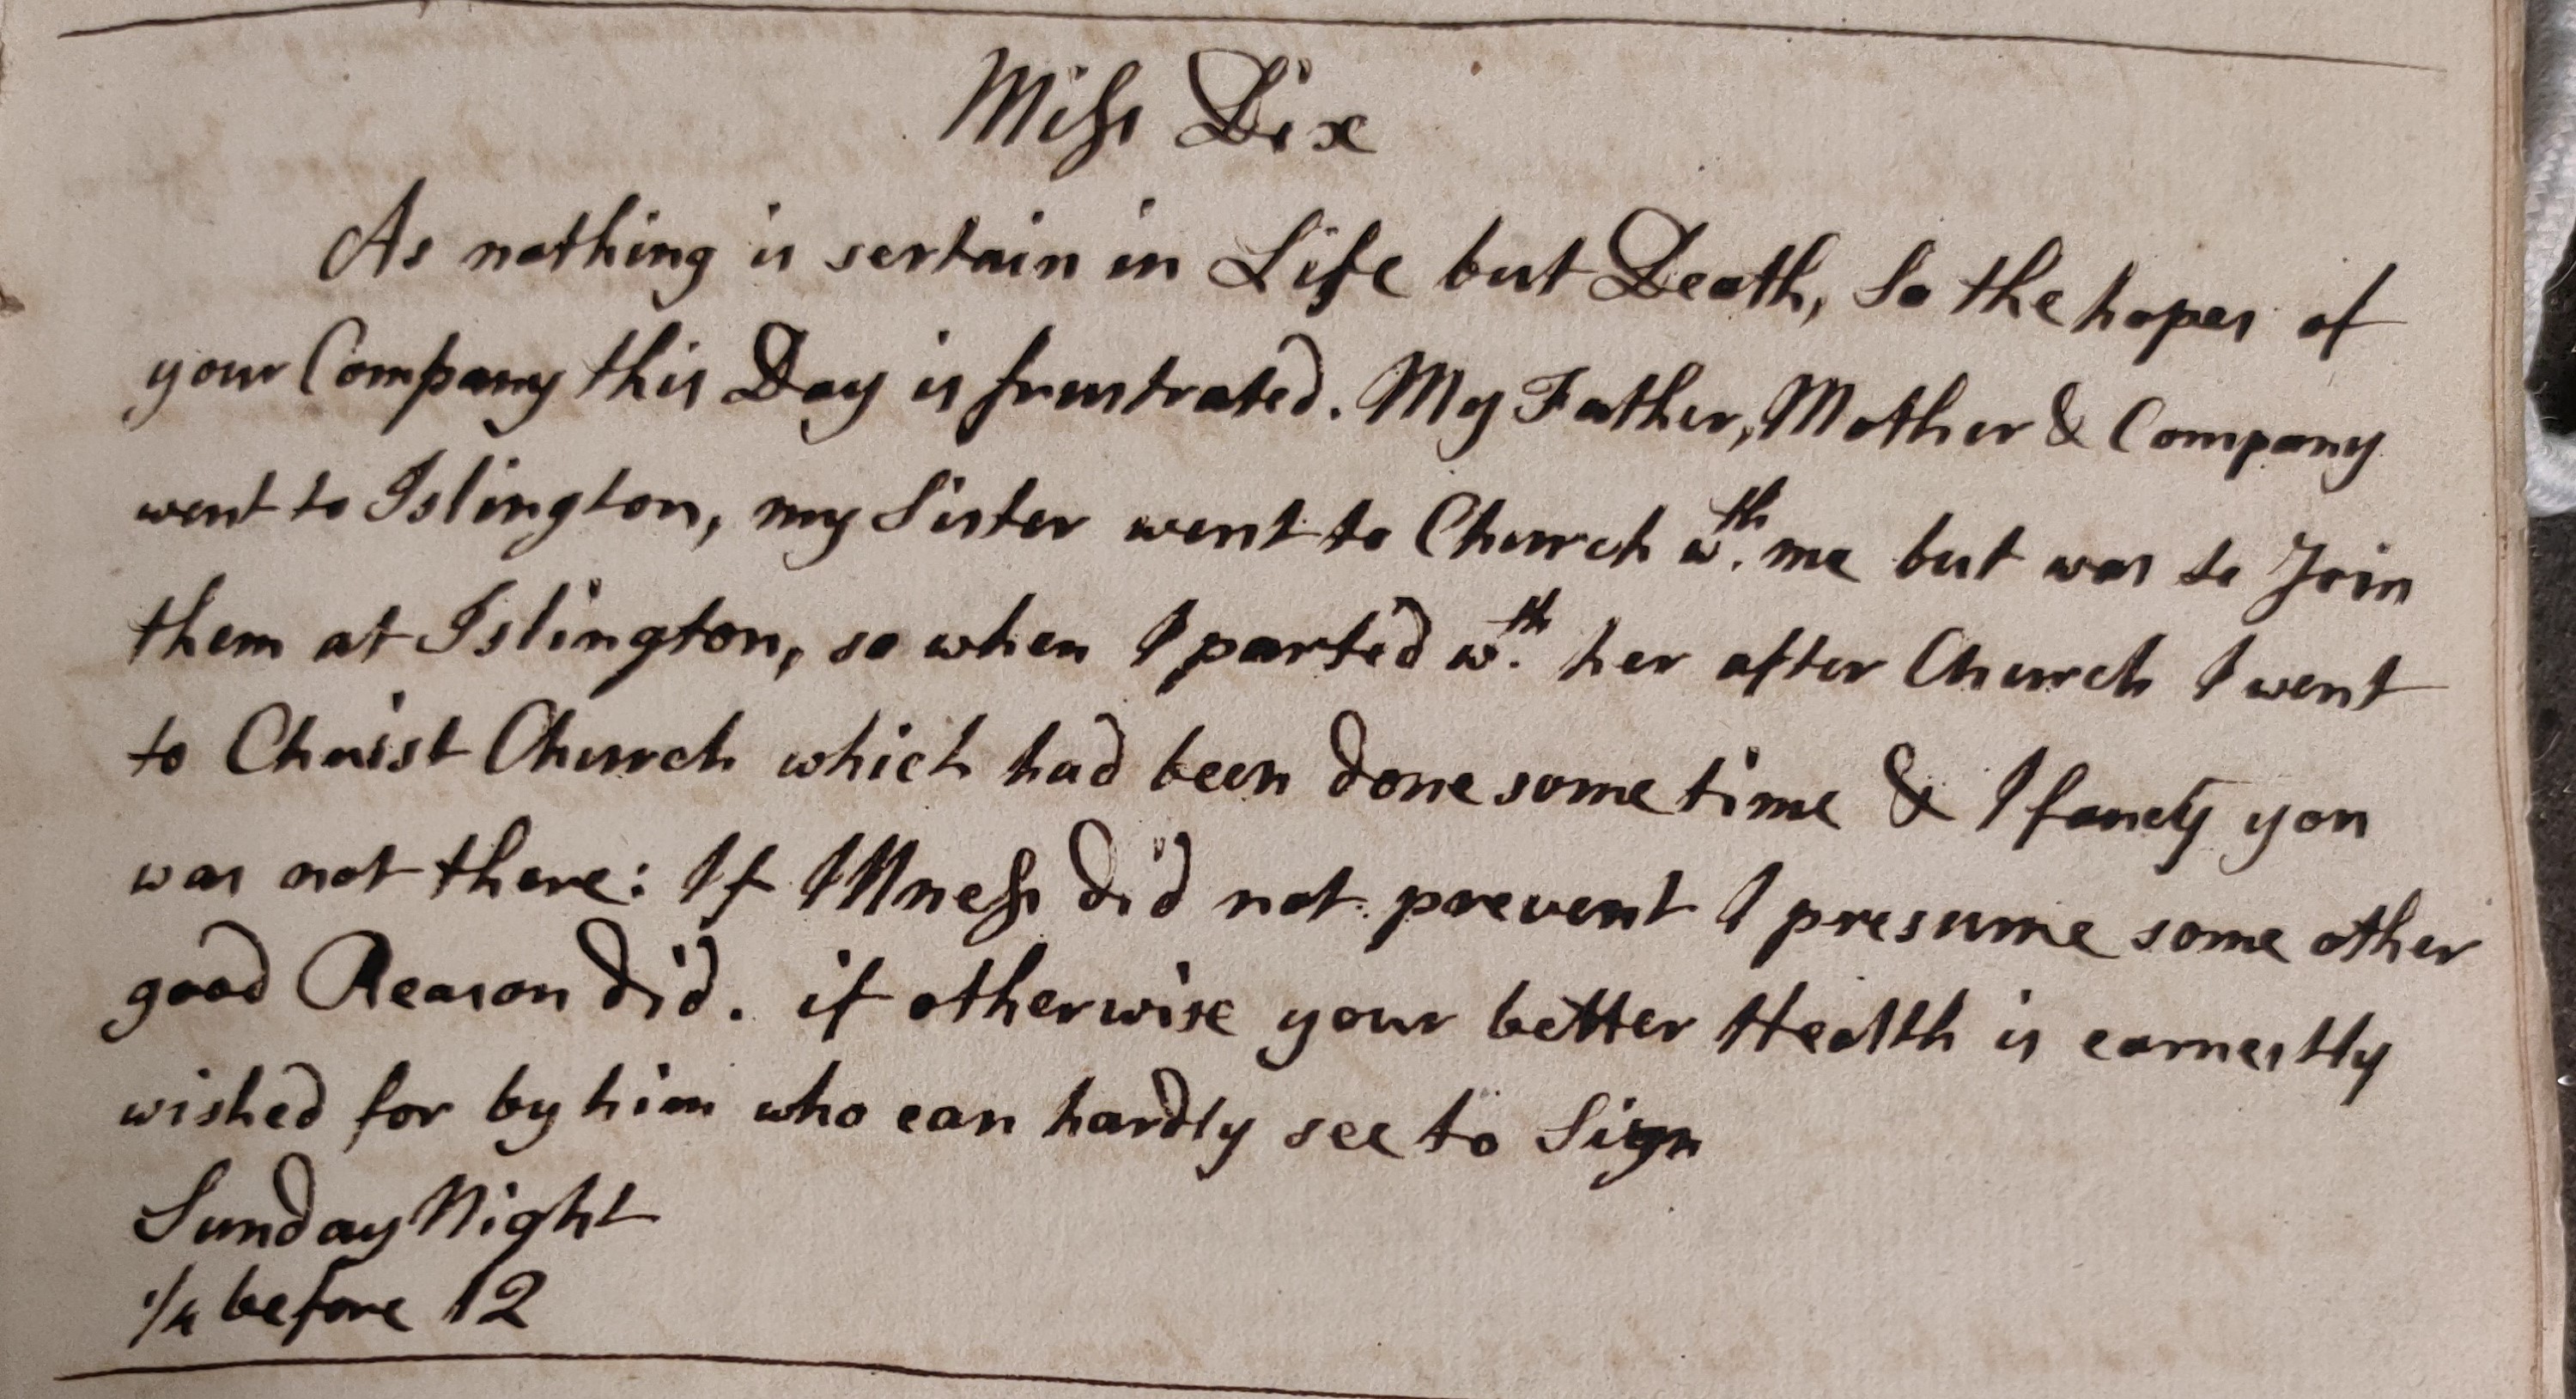 Miss Dix
As nothing is sertain in Life but Death, So the hopes of
your Company this Day is frustrated. My Father, Mother & Company
went to Islington, my Sister went to Church wth. me but was to Join
them at Islington, so when I parted wth. her after Church I went
to Christ Church which had been done some time & I fancy you
was not there: If Illness did not prevent I presume some other
good Reason did. if otherwise your better Health is earnestly
wished for by him who can hardly see to Sign
Sunday Night
1/4 before 12